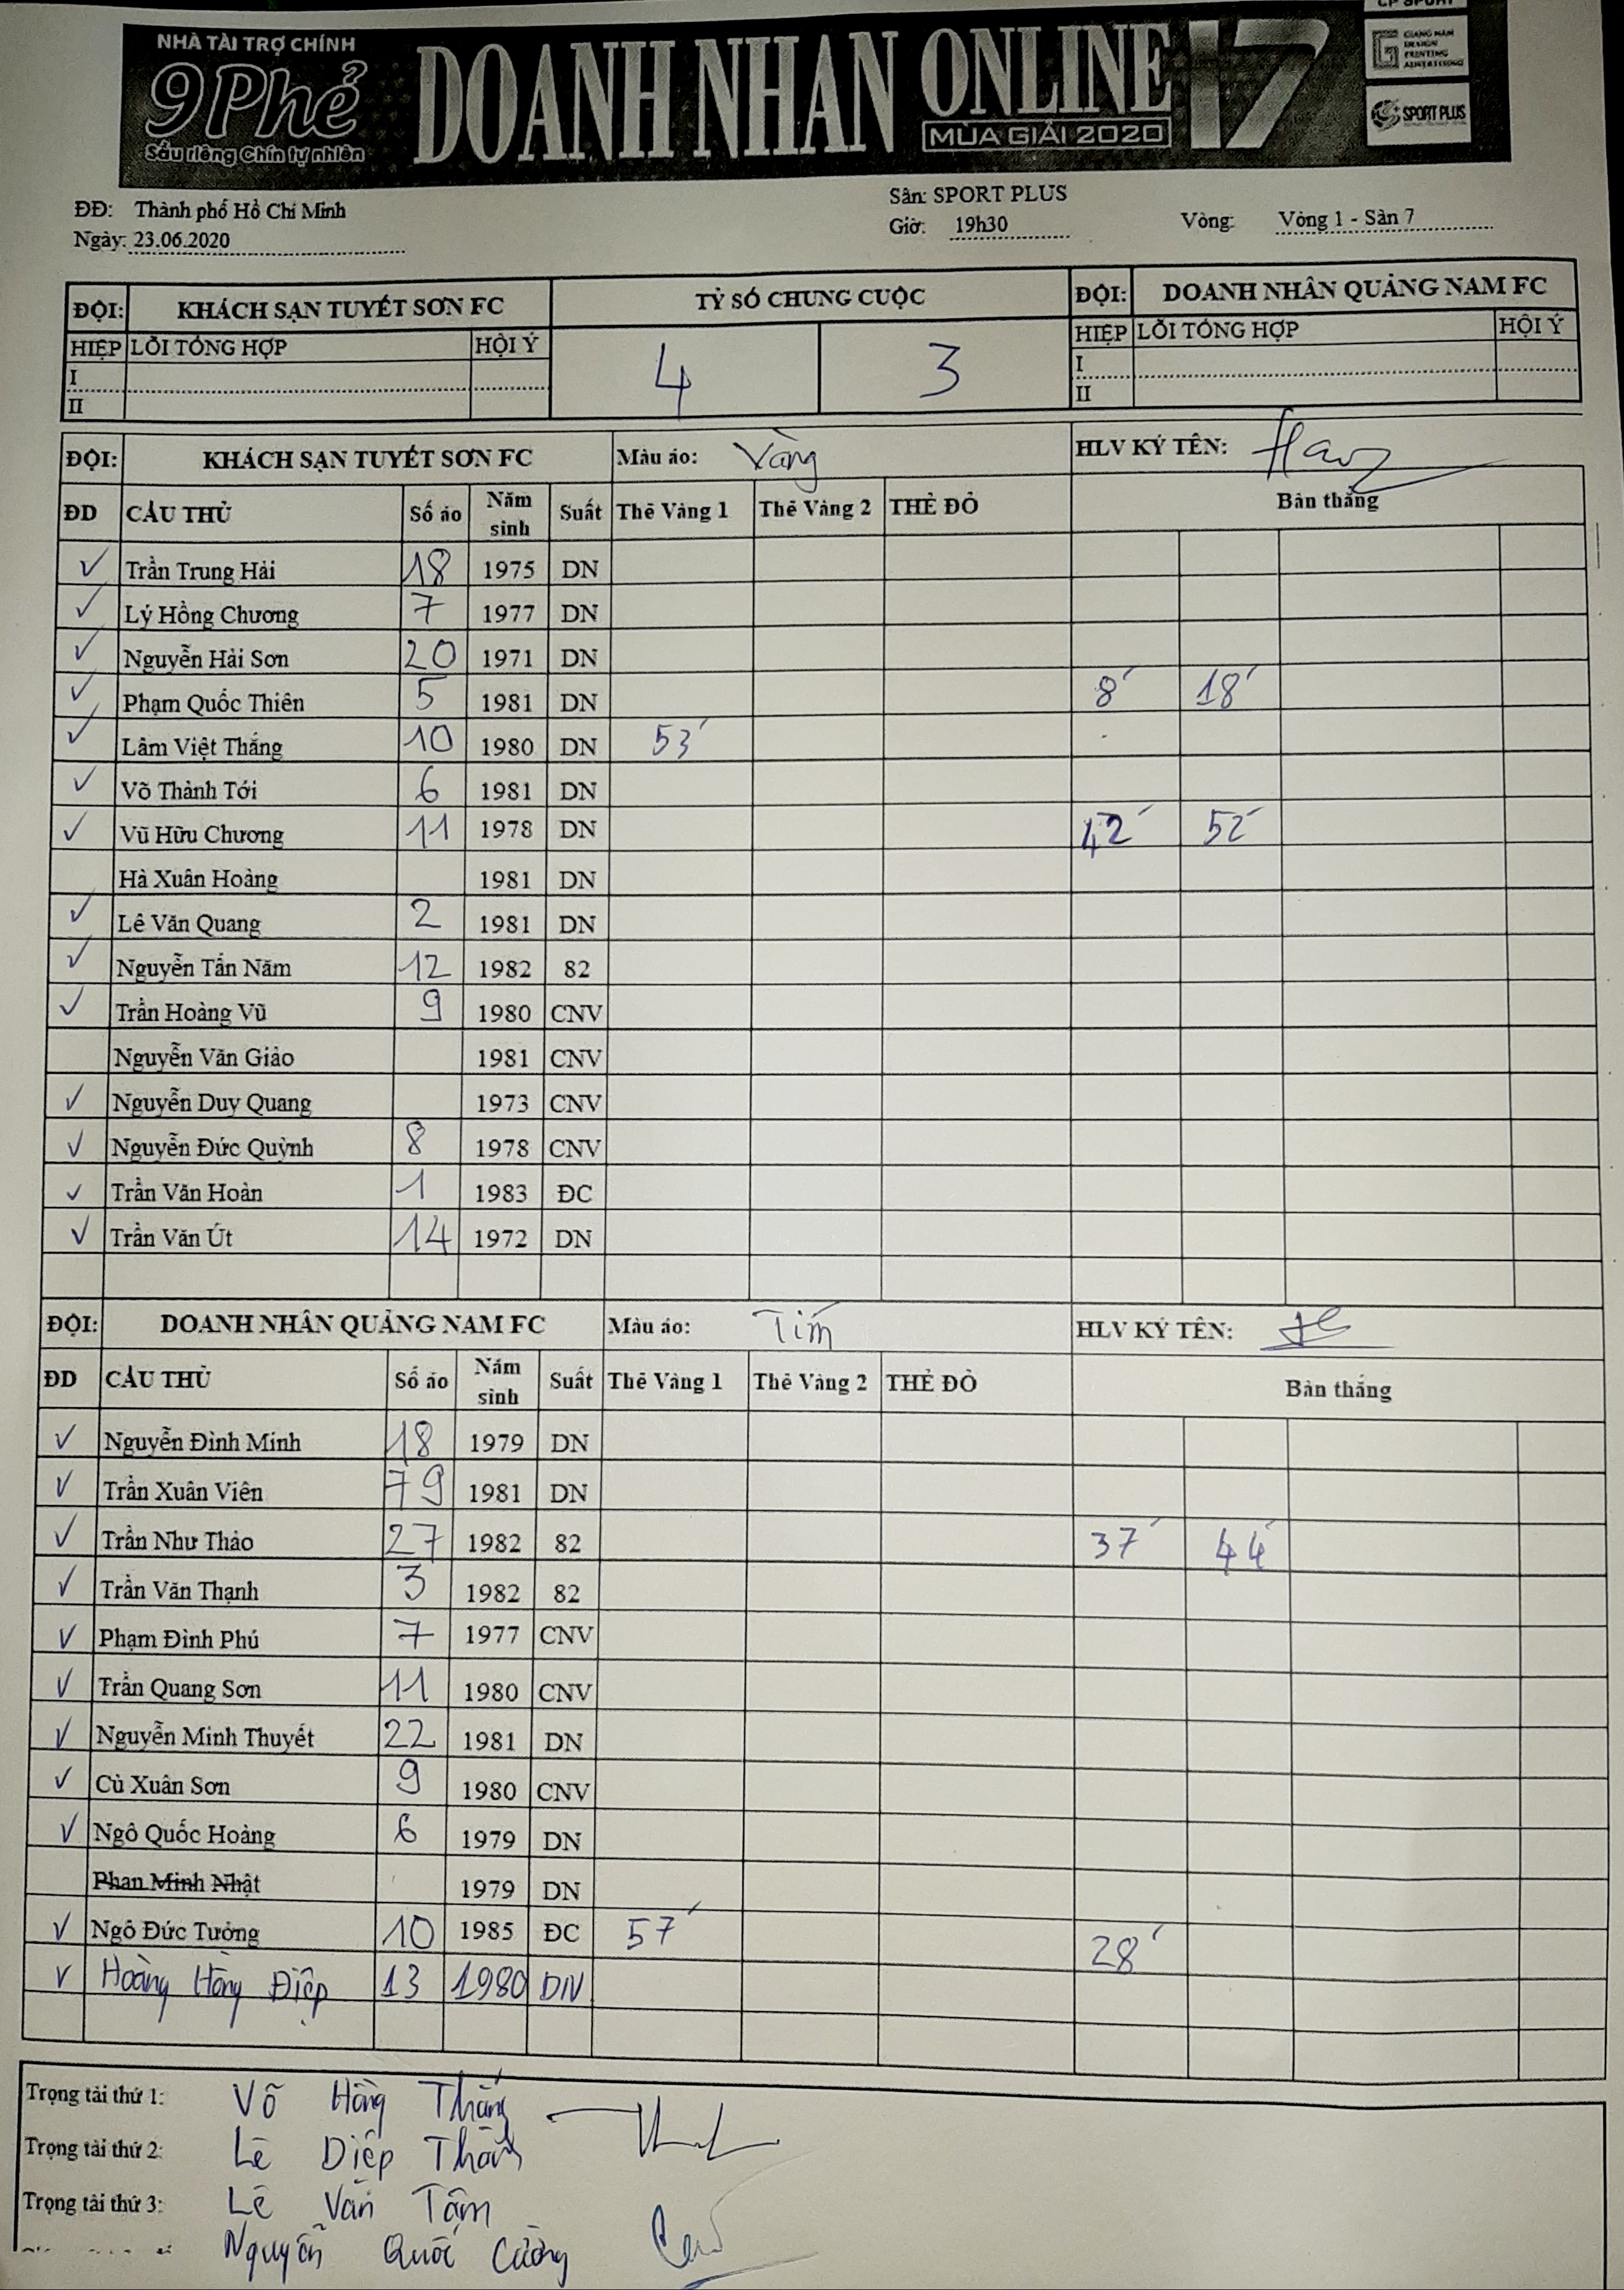 CP SPORT
NHÀ TÀI TRỢ CHÍNH
9Phẻ
Sầu riêng Chín tự nhiên
DOANH NHAN ONLINE 17
MÙA GIẢI 2020
GIANG NAM DESIGN PRINTING ADVERTISING
SPORT PLUS
ĐĐ: Thành phố Hồ Chí Minh
Sân: SPORT PLUS
Ngày: 23.06.2020
Giờ: 19h30
Vòng: Vòng 1 - Sân 7
ĐỘI: KHÁCH SẠN TUYẾT SƠN FC TỶ SỐ CHUNG CUỘC ĐỘI: DOANH NHÂN QUẢNG NAM FC
HIỆP LỖI TỔNG HỢP HỘI Ý 4 3 HIỆP LỖI TỔNG HỢP HỘI Ý
I I
II II
ĐỘI: KHÁCH SẠN TUYẾT SƠN FC Màu áo: Vàng HLV KÝ TÊN:
ĐD CẦU THỦ Số áo Năm sinh Suất Thẻ Vàng 1 Thẻ Vàng 2 THẺ ĐỎ Bàn thắng
✓ Trần Trung Hải 18 1975 DN
✓ Lý Hồng Chương 7 1977 DN
✓ Nguyễn Hải Sơn 20 1971 DN
✓ Phạm Quốc Thiên 5 1981 DN 8' 18'
✓ Lâm Việt Thắng 10 1980 DN 53'
✓ Võ Thành Tới 6 1981 DN
✓ Vũ Hữu Chương 11 1978 DN 42' 52'
Hà Xuân Hoàng 1981 DN
✓ Lê Văn Quang 2 1981 DN
✓ Nguyễn Tấn Năm 12 1982 82
✓ Trần Hoàng Vũ 9 1980 CNV
Nguyễn Văn Giảo 1981 CNV
✓ Nguyễn Duy Quang 1973 CNV
✓ Nguyễn Đức Quỳnh 8 1978 CNV
✓ Trần Văn Hoàn 1 1983 ĐC
✓ Trần Văn Út 14 1972 DN
ĐỘI: DOANH NHÂN QUẢNG NAM FC Màu áo: Tím HLV KÝ TÊN:
ĐD CẦU THỦ Số áo Năm sinh Suất Thẻ Vàng 1 Thẻ Vàng 2 THẺ ĐỎ Bàn thắng
✓ Nguyễn Đình Minh 18 1979 DN
✓ Trần Xuân Viên 79 1981 DN
✓ Trần Như Thảo 27 1982 82 37' 44'
✓ Trần Văn Thạnh 3 1982 82
✓ Phạm Đình Phú 7 1977 CNV
✓ Trần Quang Sơn 11 1980 CNV
✓ Nguyễn Minh Thuyết 22 1981 DN
✓ Cù Xuân Sơn 9 1980 CNV
✓ Ngô Quốc Hoàng 6 1979 DN
Phan Minh Nhật 1979 DN
✓ Ngô Đức Tưởng 10 1985 ĐC 57' 28'
✓ Hoàng Hồng Điệp 13 1980 DN
Trọng tài thứ 1: Võ Hồng Thắng
Trọng tài thứ 2: Lê Diệp
Trọng tài thứ 3: Lê Văn Tâm
Nguyễn Quốc Cường